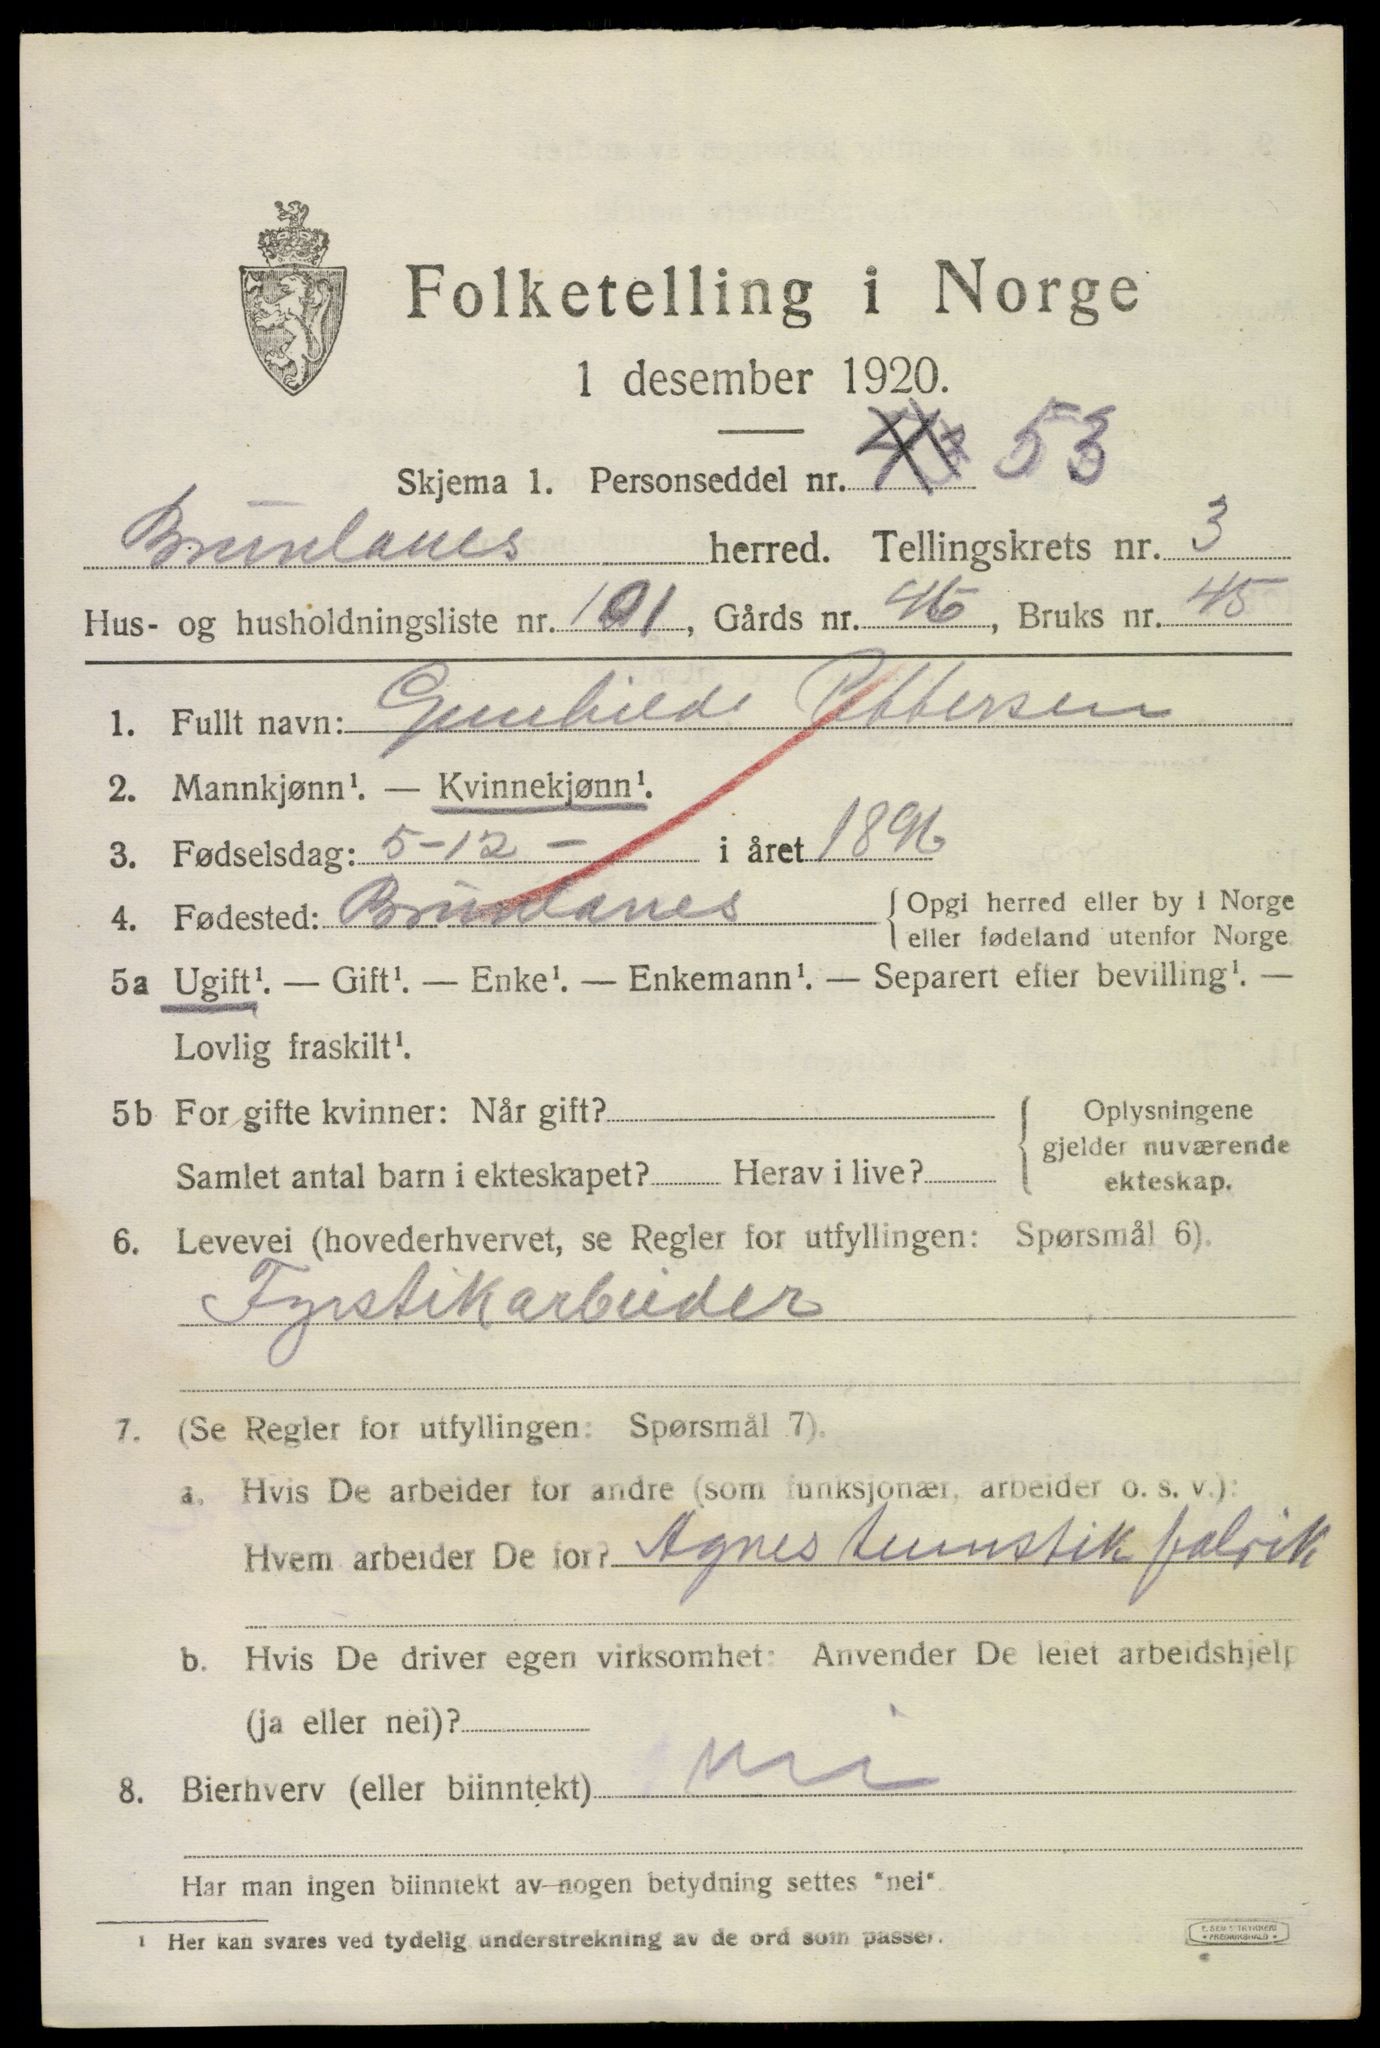 Folketelling i Norge
1 desember 1920.
Skjema 1. Personseddel nr. 53
Brunlanes herred. Tellingskrets nr. 3
Hus- og husholdningsliste nr. 101, Gårds nr. 46, Bruks nr. 45
1. Fullt navn: Gunhilde Pettersen
2. Mannkjønn¹. — Kvinnekjønn¹.
3. Fødselsdag: 5-12 - i året 1896
4. Fødested: Brunlanes { Opgi herred eller by i Norge
eller fødeland utenfor Norge
5a Ugift¹. — Gift¹. — Enke¹. — Enkemann¹. — Separert efter bevilling¹. —
Lovlig fraskilt¹.
5b For gifte kvinner: Når gift? { Oplysningene
gjelder nuværende
Samlet antal barn i ekteskapet? Herav i live? ekteskap.
6. Levevei (hovederhvervet, se Regler for utfyllingen: Spørsmål 6).
Fyrstikarbeider
7. (Se Regler for utfyllingen: Spørsmål 7).
a. Hvis De arbeider for andre (som funksjonær, arbeider o. s. v.):
Hvem arbeider De for? Agnes tunstik fabrik
b. Hvis De driver egen virksomhet: Anvender De leiet arbeidshjelp
(ja eller nei)?
8. Bierhverv (eller biinntekt) nei
Har man ingen biinntekt av nogen betydning settes "nei".
¹ Her kan svares ved tydelig understrekning av de ord som passer.
E. SEM'S TRYKKERI
• FREDRIKSHALD •